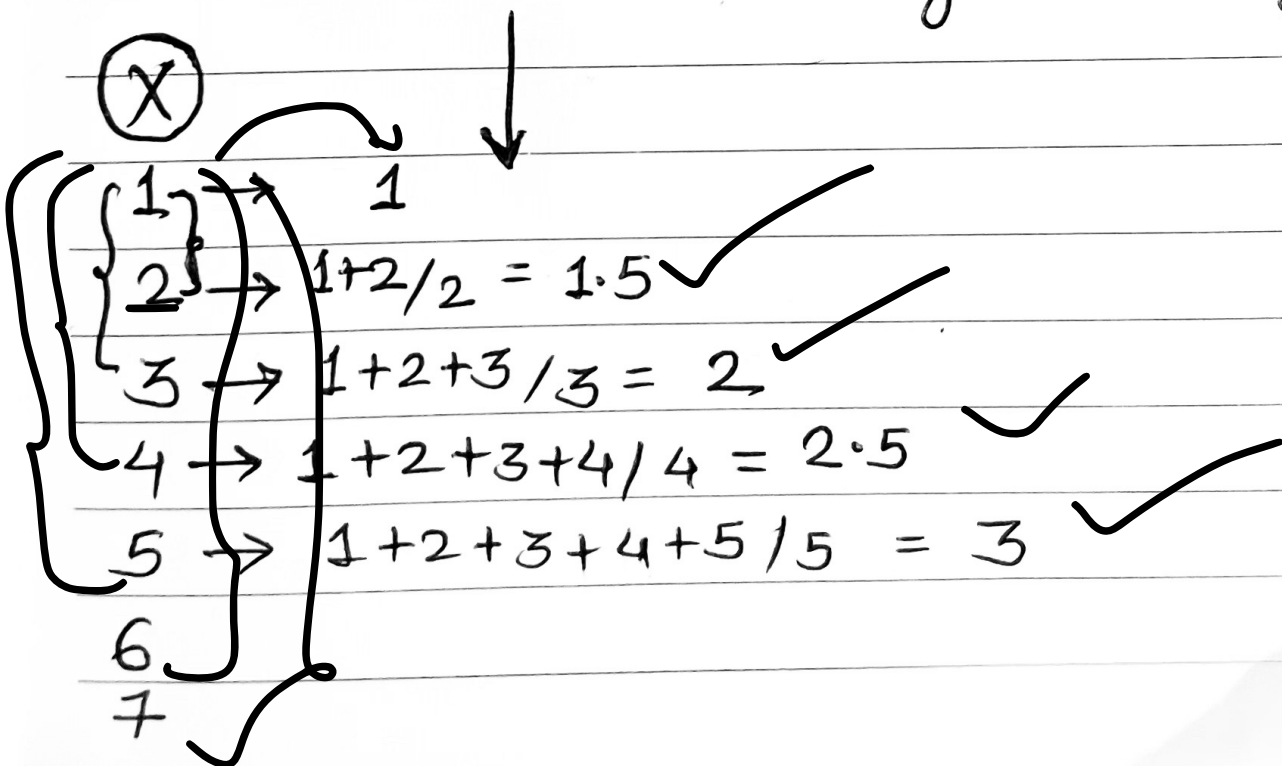 X
1 → 1
2 → 1+2/2 = 1.5
3 → 1+2+3/3 = 2
4 → 1+2+3+4/4 = 2.5
5 → 1+2+3+4+5/5 = 3
6
7